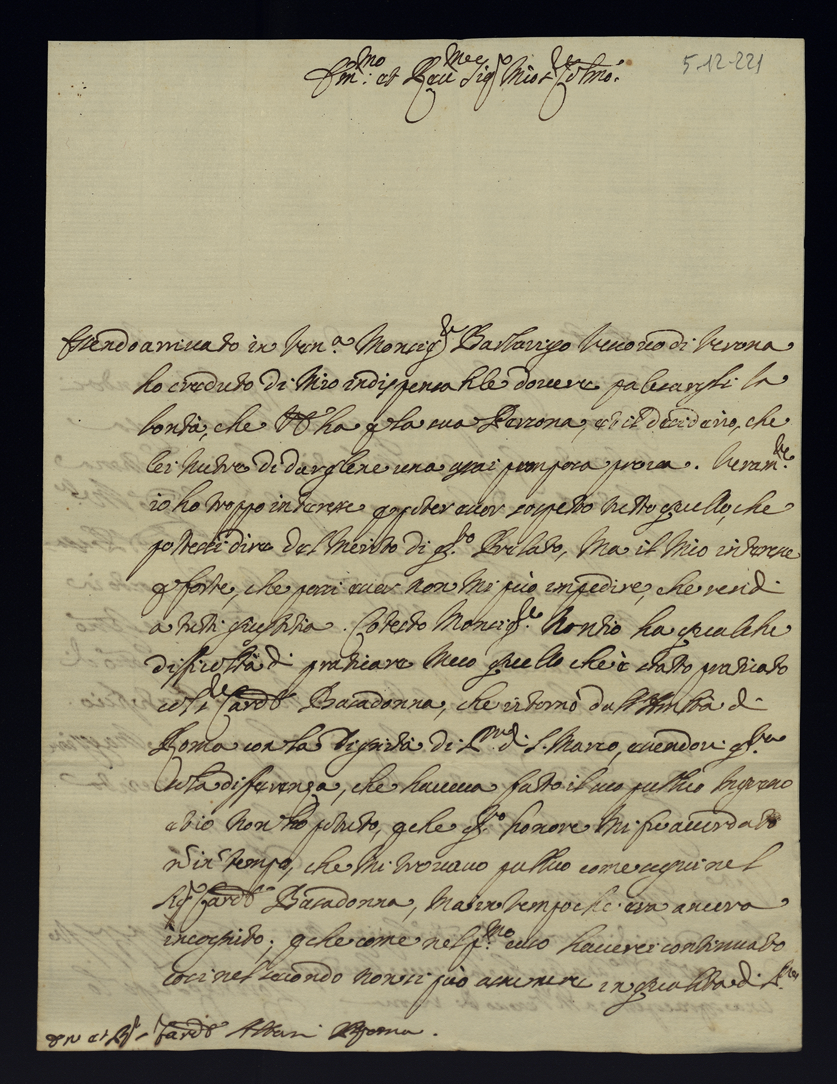 5-12-221
Em.mo et Rev.mo Sig.re Mio Sig.re Col.mo
Essendo arrivato in Ven.a Monsig.re Barbarigo Vescovo di Verona
ho creduto di Mio indispensabile dovere palesargli la
bontà, che VE ha p la sua Persona, et il desiderio, che
lei nutre di dargliene una ogni prova. Veram.te
io ho troppo interesse p poter aver sospetto tutto quello, che
potessi dire del Merito di q.to Prelato, Ma il Mio interesse
p forte, che possi aver non mi può impedire, che rendi
a tutti giustitia. Cotesto Monsig.re Nontio ha qualche
difficoltà di praticare Meco quello che è stato praticato
col Sig.r Card.e Basadonna, che ritornò dall'Amb.ta di
Roma con la Dignità di P.re di S. Marco, essendovi q.sta
sola differenza, che haveva fatto il suo publico Ingresso
et io non ho potuto, p che q.to honore Mi fu accordato
in tempo, che mi trovavo publico come seguì nel
Sig.r Card.e Basadonna, Ma in tempo che era ancora
incognito; p che come nel p.mo caso haverei continuato
così nel secondo non si può assumere in qualità di
Em et R. Sig.r Card.e Albani Roma.